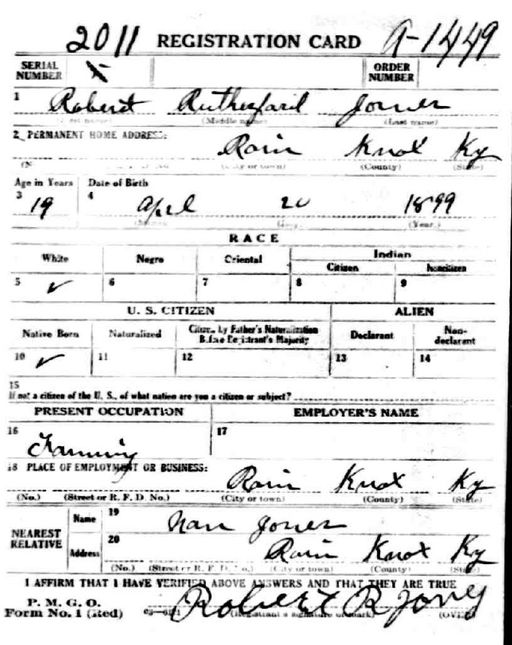 2011 REGISTRATION CARD A-1449
SERIAL NUMBER ORDER NUMBER
1 Robert Rutherford Jones
(Middle name) (Last name)
2 PERMANENT HOME ADDRESS:
Rain Knox Ky
(City or town) (County) (State)
Age in Years Date of Birth
3 19 4 April 20 1899
(Day) (Year)
RACE
White Negro Oriental Indian
Citizen Noncitizen
5 ✓ 6 7 8 9
U. S. CITIZEN ALIEN
Native Born Naturalized Citizen by Father's Naturalization Before Registrant's Majority Declarant Non-declarant
10 ✓ 11 12 13 14
15
If not a citizen of the U. S., of what nation are you a citizen or subject?
PRESENT OCCUPATION EMPLOYER'S NAME
16 Farming 17
18 PLACE OF EMPLOYMENT OR BUSINESS:
Rain Knox Ky
(No.) (Street or R. F. D. No.) (City or town) (County) (State)
NEAREST RELATIVE Name 19 Nan Jones
Address 20 Rain Knox Ky
(No.) (Street or R. F. D. No.) (City or town) (County) (State)
I AFFIRM THAT I HAVE VERIFIED ABOVE ANSWERS AND THAT THEY ARE TRUE
P. M. G. O.
Form No. 1 (Red) Robert R Jones
(Registrant's signature or mark) (OVER)